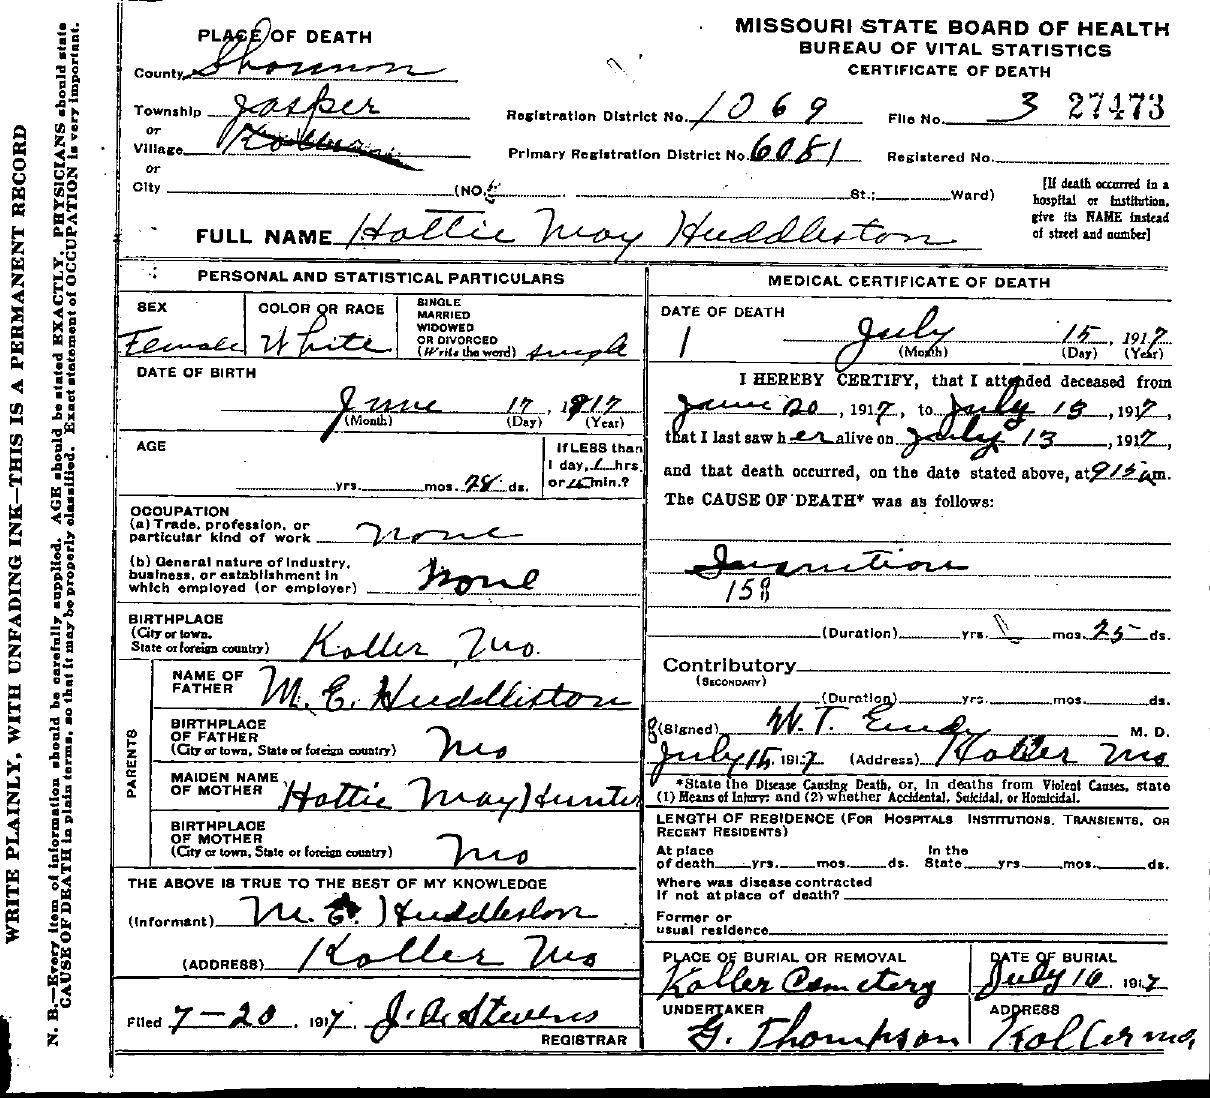 MISSOURI STATE BOARD OF HEALTH
BUREAU OF VITAL STATISTICS
CERTIFICATE OF DEATH
PLACE OF DEATH
County Shannon
Township Jasper
or
Village
or
City (NO. St.; Ward)
Registration District No. 1069 File No. 3 27473
Primary Registration District No. 6081 Registered No.
[If death occurred in a
hospital or institution,
give its NAME instead
of street and number]
FULL NAME Hattie May Huddleston
PERSONAL AND STATISTICAL PARTICULARS
SEX
Female
COLOR OR RACE
White
SINGLE
MARRIED
WIDOWED
OR DIVORCED
(Write the word) single
DATE OF BIRTH
June 17, 1917
(Month) (Day) (Year)
AGE
yrs. mos. 28 ds.
If LESS than
1 day, hrs.
or min.?
OCCUPATION
(a) Trade, profession, or
particular kind of work none
(b) General nature of Industry,
business, or establishment in
which employed (or employer) None
BIRTHPLACE
(City or town,
State or foreign country) Koller, Mo.
PARENTS
NAME OF
FATHER M. E. Huddleston
BIRTHPLACE
OF FATHER
(City or town, State or foreign country) Mo
MAIDEN NAME
OF MOTHER Hattie May Hunter
BIRTHPLACE
OF MOTHER
(City or town, State or foreign country) Mo
THE ABOVE IS TRUE TO THE BEST OF MY KNOWLEDGE
(Informant) M. E. Huddleston
(ADDRESS) Koller Mo
Filed 7-20, 1917, J. A. Stevens
REGISTRAR
MEDICAL CERTIFICATE OF DEATH
DATE OF DEATH
1 July 15, 1917
(Month) (Day) (Year)
I HEREBY CERTIFY, that I attended deceased from
June 20, 1917, to July 13, 1917,
that I last saw her alive on July 13, 1917,
and that death occurred, on the date stated above, at 915 am.
The CAUSE OF DEATH* was as follows:
Inanition
158
(Duration) yrs. mos. 25 ds.
Contributory
(SECONDARY)
(Duration) yrs. mos. ds.
(Signed) W. T. M. D.
July 15, 1917 (Address) Koller Mo
*State the Disease Causing Death, or, in deaths from Violent Causes, state
(1) Means of Injury; and (2) whether Accidental, Suicidal, or Homicidal.
LENGTH OF RESIDENCE (FOR HOSPITALS INSTITUTIONS, TRANSIENTS, OR
RECENT RESIDENTS)
At place In the
of death yrs. mos. ds. State yrs. mos. ds.
Where was disease contracted
If not at place of death?
Former or
usual residence
PLACE OF BURIAL OR REMOVAL
Koller Cemetery
DATE OF BURIAL
July 16, 1917
UNDERTAKER
G. Thompson
ADDRESS
Koller Mo,
WRITE PLAINLY, WITH UNFADING INK—THIS IS A PERMANENT RECORD
N. B.—Every item of information should be carefully supplied. AGE should be stated EXACTLY. PHYSICIANS should state
CAUSE OF DEATH in plain terms, so that it may be properly classified. Exact statement of OCCUPATION is very important.